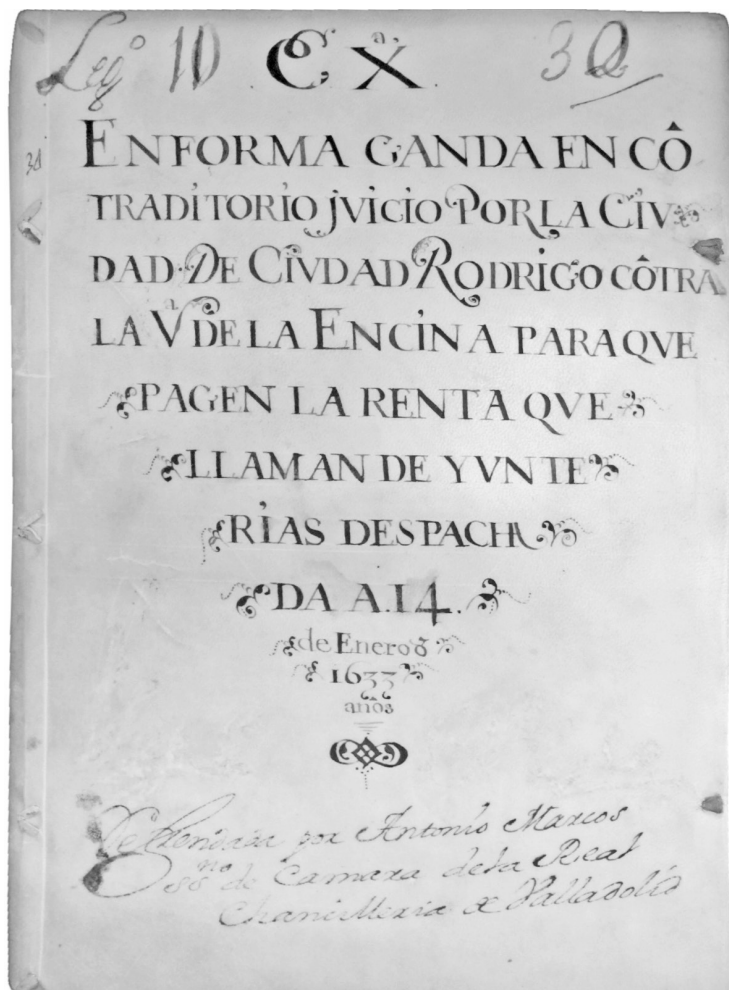 Leg.º 10 C.ª X. 32
38
ENFORMA GANDA EN CÔ
TRADITORIO JVICIO POR LA CIV
DAD DE CIVDAD RODRIGO CÔTRA
LA Vª DE LA ENCINA PARA QVE
PAGEN LA RENTA QVE
LLAMAN DE YVNTE
RIAS DESPACHA
DA A.14.
de Enero đ
1633
años
por Antonio Marcos
ssnº de Camara dela Real
Chancilleria de Valladolid